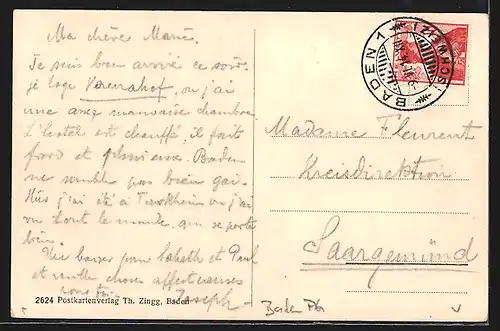 Ma chère Marie.
Je suis bien arrivé ce soir.
je loge Verenahof, où j'ai
une assez mauvaise chambre.
L'hotel est chauffé, il fait
froid et pluvieux. Baden
ne semble pas bien gai.
j'ai été à où j'ai
vu tout le monde, qui se porte
bien.
baiser pour et Paul
et mille choses affectueuses
Joseph
2624 Postkartenverlag Th. Zingg, Baden
BADEN 1
(SCHWEIZ)
Madame Fleurent
Kreisdirektion
Saargemünd
Baden